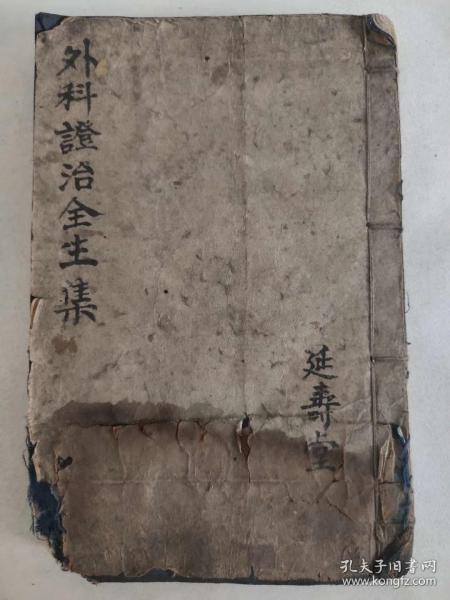 外科證治全生集
延壽堂
孔夫子旧书网
www.kongfz.com